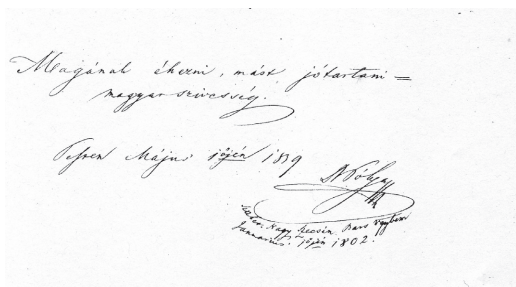 Magának éhezni, mást jótartani =
magyar szivesség.
Pesten Május 1őjén 1839
Dr Pólya
Nagy Szecsin Bars
Januarius 1őjén 1802.